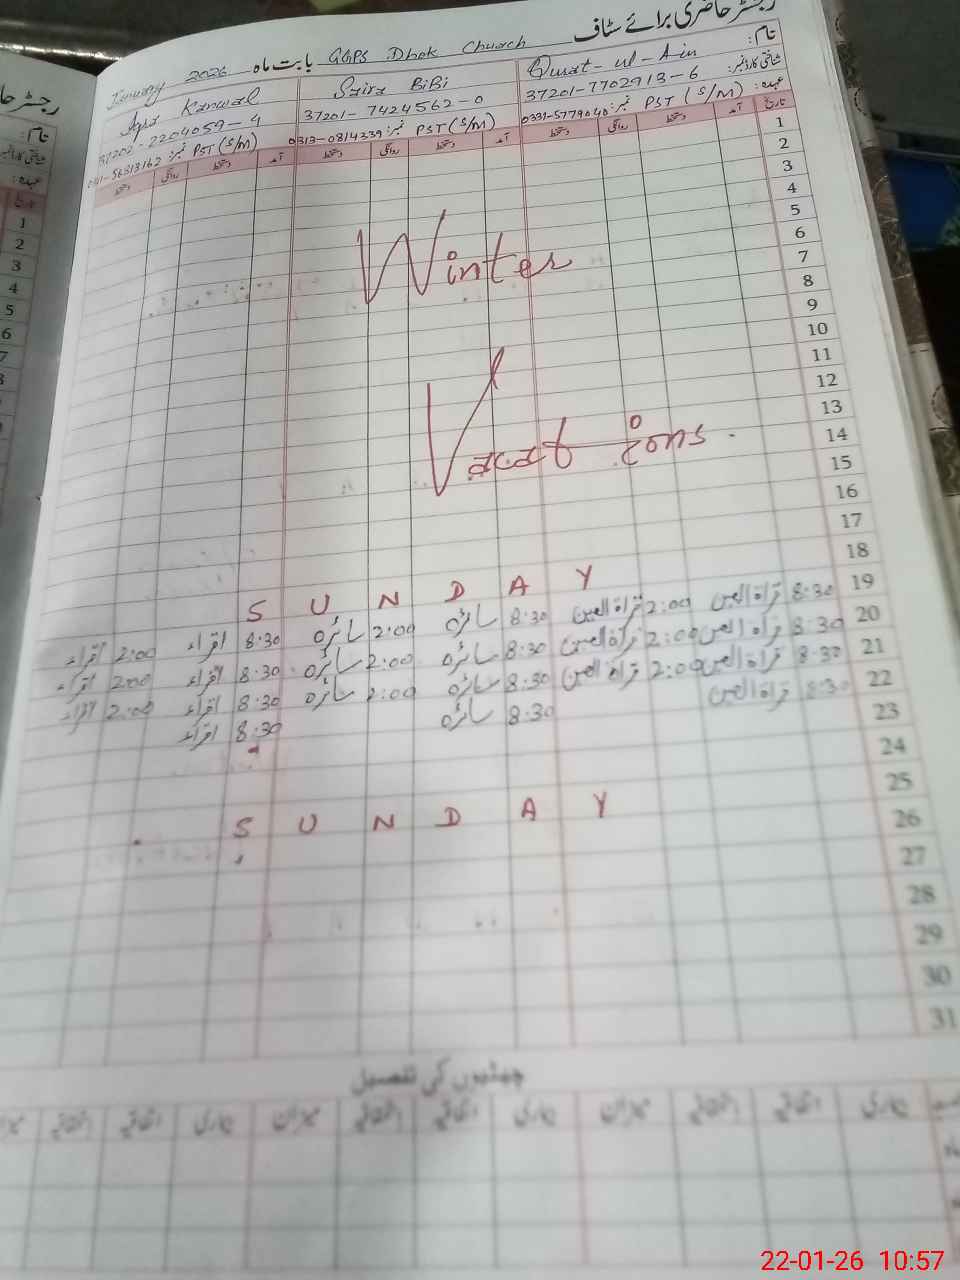 رجسٹر حاضری برائے سٹاف
January 2026 بابت ماہ GGPS Dhok Church
نام: Qurat-ul-Ain
Saira BiBi
Kanwal
شناختی کارڈ نمبر: 37201-7702913-6
37201-7424562-0
37202-2204059-4
عہدہ: PST (S/M) نمبر: 0331-5779040
PST (S/M) نمبر: 0313-0814239
PST (S/M) نمبر:
تاریخ آمد دستخط روانگی دستخط آمد دستخط روانگی دستخط آمد دستخط روانگی دستخط
1
2
3
4
5
6
7
8
9
10
11
12
13
14
15
16
17
18
Winter
Vacations.
SUNDAY
19
8:30 قراۃ العین 2:00 قراۃ العین 8:30 سائرہ 2:00 سائرہ 8:30 اقراء 2:00 اقراء
20
8:30 قراۃ العین 2:00 قراۃ العین 8:30 سائرہ 2:00 سائرہ 8:30 اقراء 2:00 اقراء
21
8:30 قراۃ العین 2:00 قراۃ العین 8:30 سائرہ 2:00 سائرہ 8:30 اقراء 2:00 اقراء
22
8:30 قراۃ العین 8:30 سائرہ 8:30 اقراء
23
24
25
SUNDAY
26
27
28
29
30
31
چھٹیوں کی تفصیل
بیماری اتفاقیہ استحقاقیہ میزان بیماری اتفاقیہ استحقاقیہ میزان بیماری اتفاقیہ استحقاقیہ
رجسٹر
نام:
عہدہ:
تاریخ
1
2
3
4
5
6
7
8
22-01-26 10:57